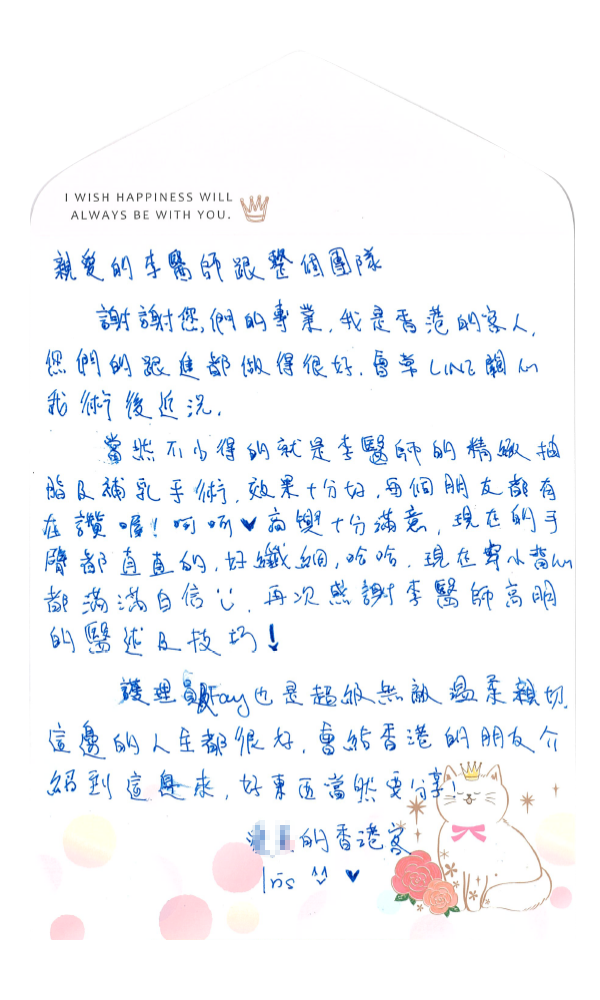 I WISH HAPPINESS WILL
ALWAYS BE WITH YOU.
親愛的李醫師跟整個團隊
謝謝您,們的專業,我是香港的客人,
您們的跟進都做得很好,會草LINE關心
我術後近況,
當然不少得的就是李醫師的精緻抽
脂及補乳手術,效果十分好,每個朋友都有
在讚喔!呵呵♥ 兩雙十分滿意,現在的手
臂都直直的,好纖細,哈哈,現在穿小背心
都滿滿自信 再次感謝李醫師高明
的醫述及技巧!
護理員Fay也是超級無敵溫柔親切,
這邊的人都很好,會給香港的朋友介
紹到這來,好東西當然要分享!
的香港客
Iris ^^ ♥